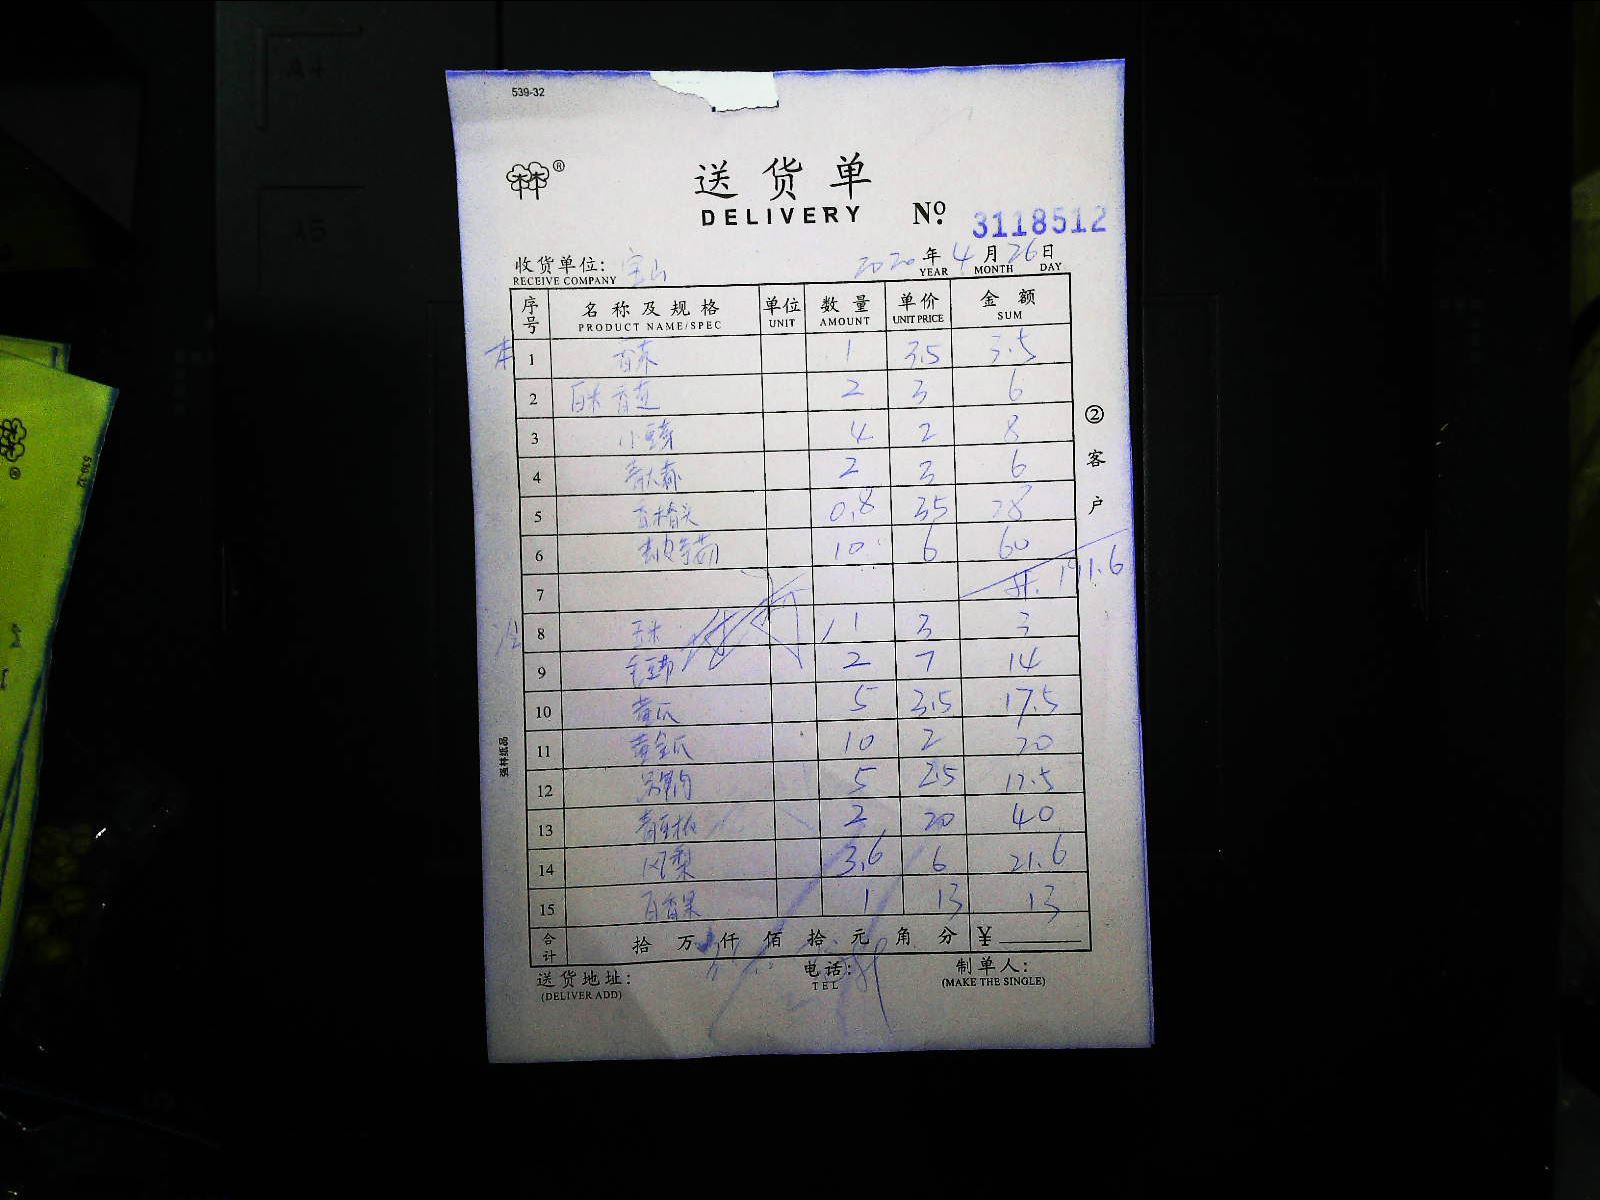 539-32
®
送货单
DELIVERY
№ 3118512
收货单位: 宝山 2020年4月26日
RECEIVE COMPANY YEAR MONTH DAY
序号 名称及规格 单位 数量 单价 金额
PRODUCT NAME/SPEC UNIT AMOUNT UNIT PRICE SUM
1 1 3.5 3.5
2 2 3 6
3 小豆芽 4 2 8
4 青大蒜 2 3 6
5 0.8 35 28
6 10 6 60
7 191.6
8 玉米 1 3 3
9 2 7 14
10 黄瓜 5 3.5 17.5
11 黄金瓜 10 2 20
12 5 2.5 12.5
13 2 20 40
14 凤梨 3.6 6 21.6
15 百香果 1 13 13
合计 拾 万 仟 佰 拾 元 角 分 ¥
送货地址: 电话: 制单人:
(DELIVER ADD) TEL (MAKE THE SINGLE)
② 客户
强林纸品
539-32
®